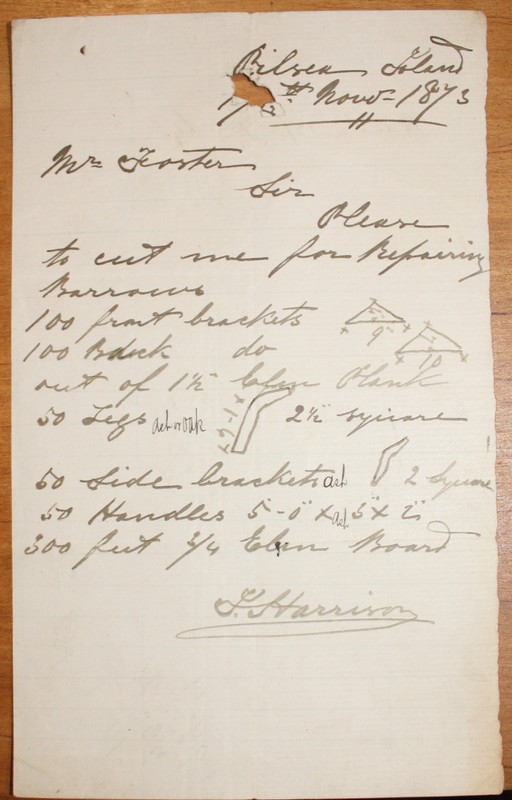 Pilsea Island
17th Novr 1873
Mr Foster
Sir
Please
to cut me for Repairing
Barrows
100 front brackets 9"
100 Back do 10
out of 1½ Elm Plank
50 Legs ash or oak 2-1 2½ square
50 Side brackets ash 2 Square
50 Handles 5-0 x ash 3 x 2
300 feet ¾ Elm Board
F. Harrison